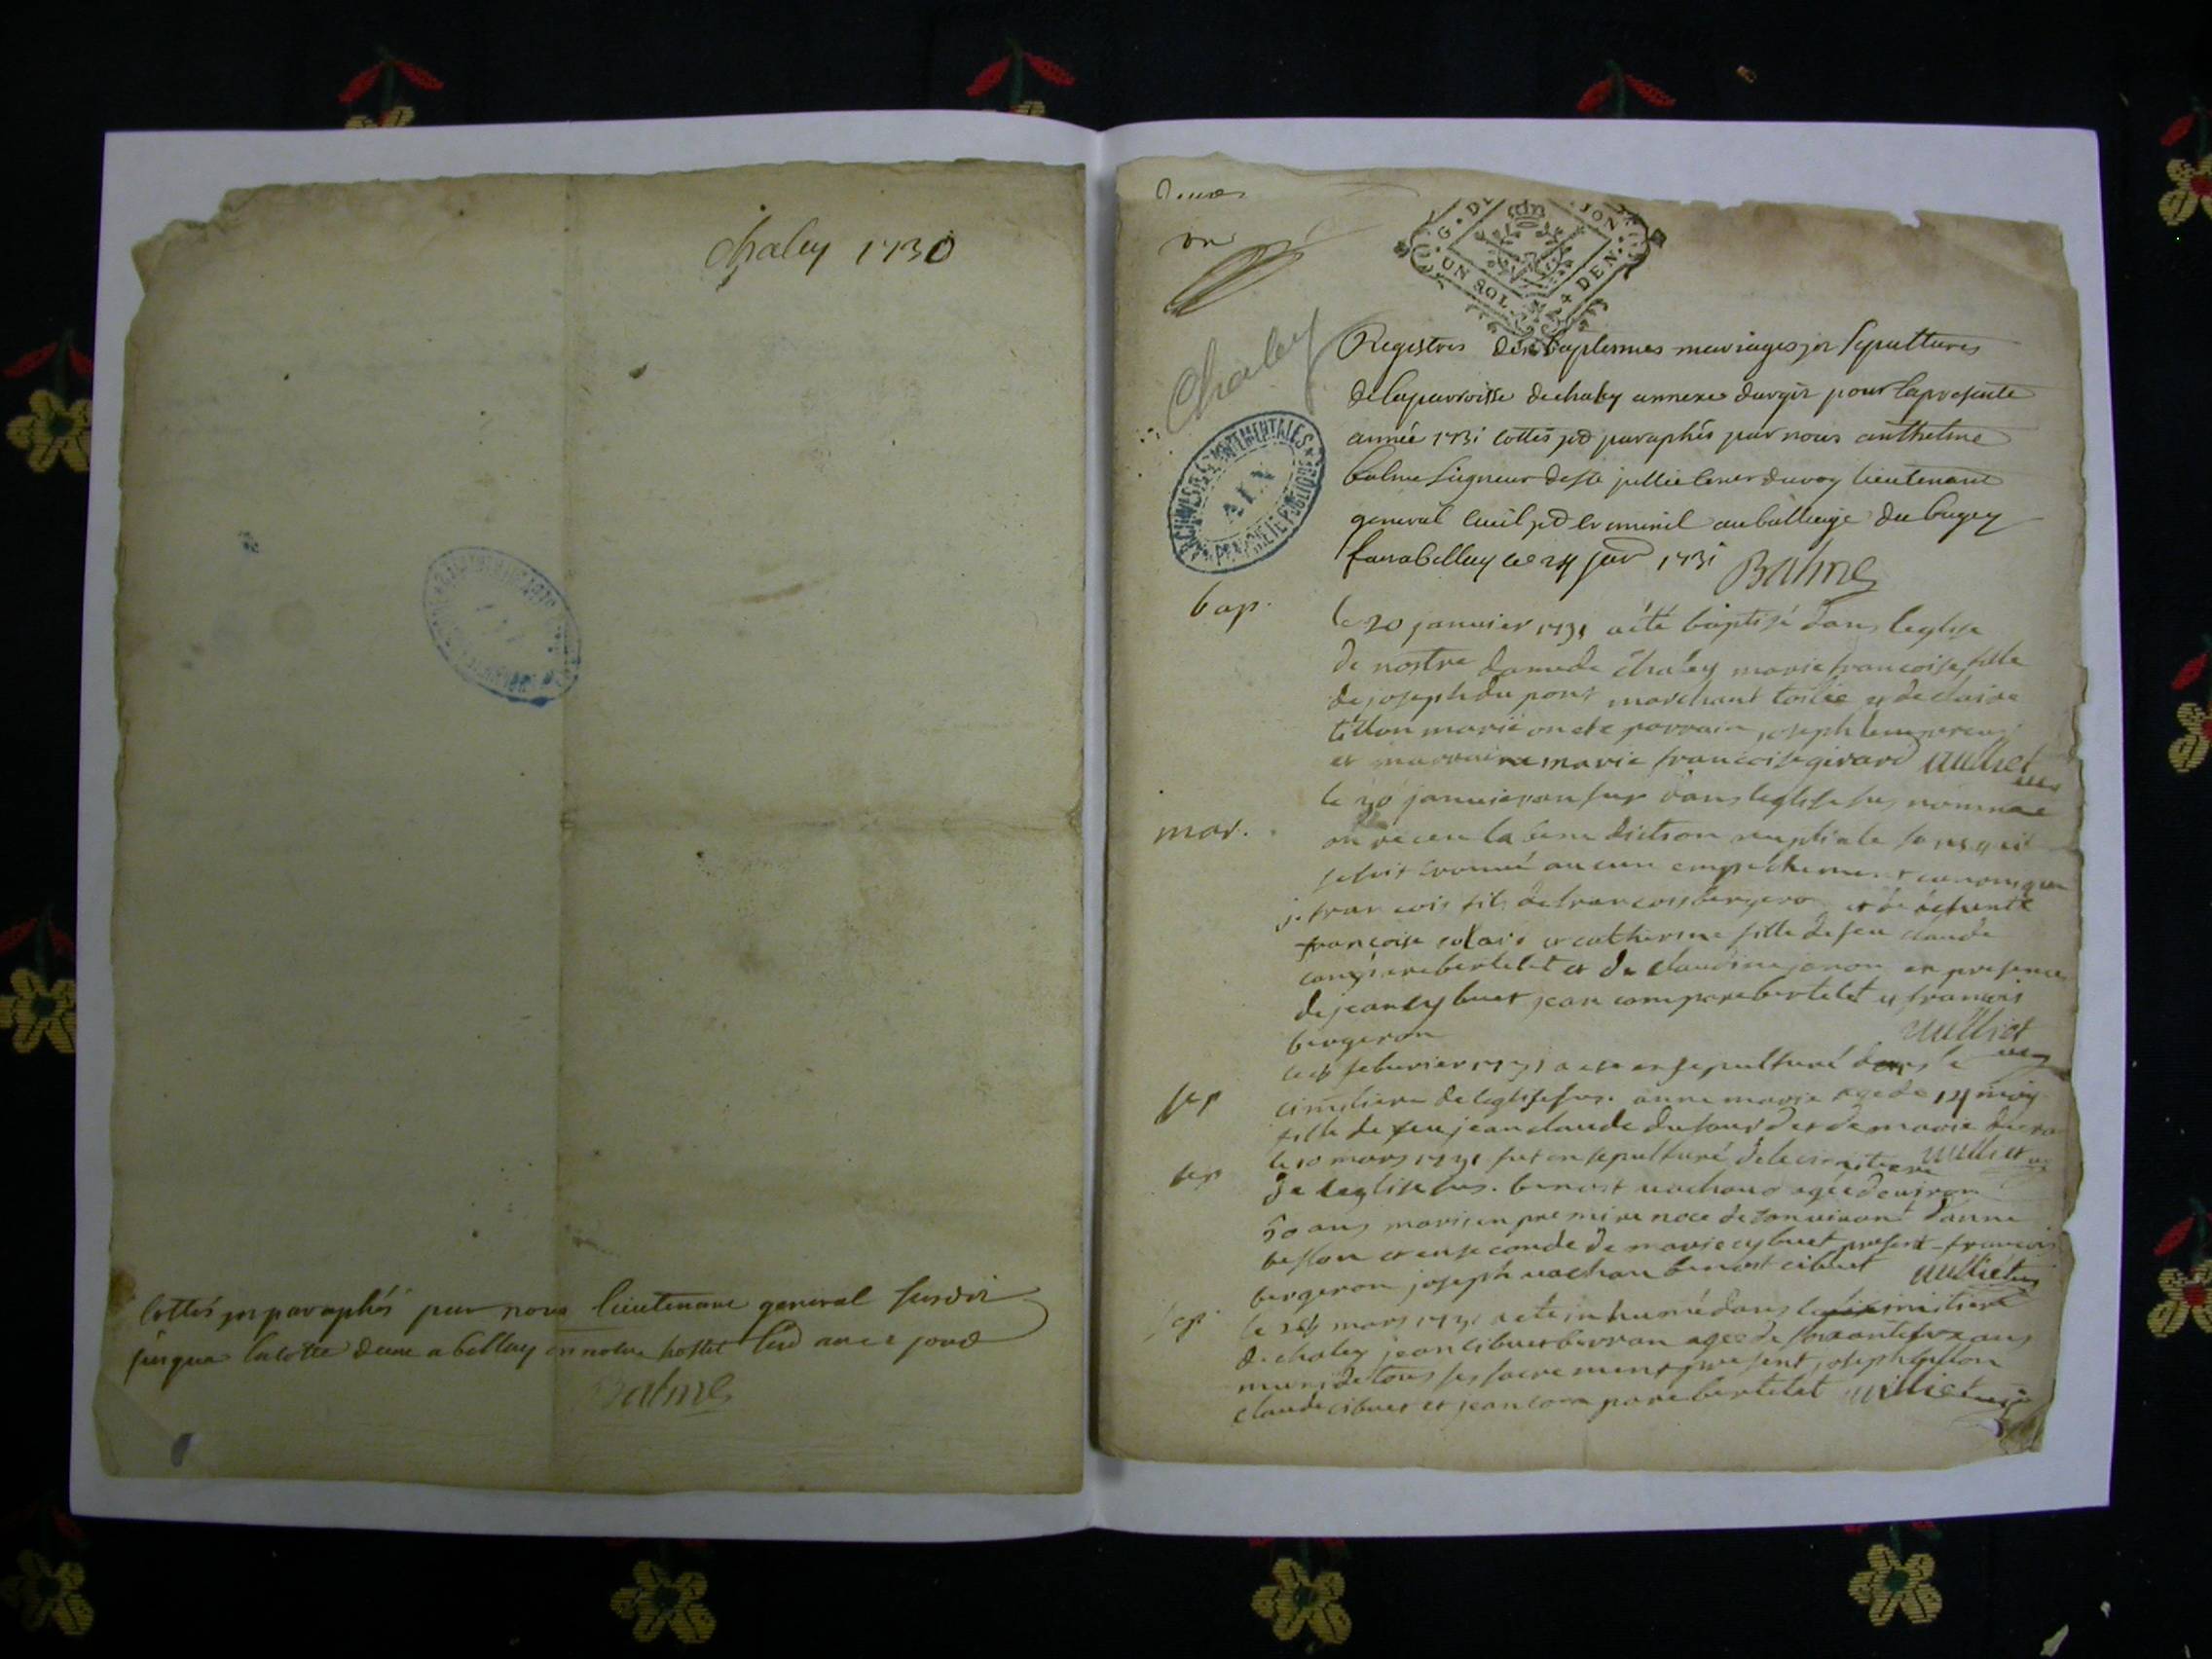 chaley 1730
cottés et paraphés par nous lieutenant general susdit
jusqua la cotte deux a belley en notre hostel lesd an et jour
Balme
deux
un
G. DI JON
UN SOL 4 DEN.
Chaley
ARCHIVES DEPARTEMENTALES
AIN
PROPRIETE PUBLIQUE
Registres des baptemes mariages et sepultures
de la parroisse de chaley annexe dargis pour la presente
année 1731 cottés et paraphés par nous anthelme
balme seigneur de ste jullie coner du roy lieutenant
general civil et criminel au balliage du bugey
fait a belley ce 24 janv 1731 Balme
bap.
le 20 janvier 1731 a été baptisé dans leglise
de nostre dame de chaley marie francoise fille
de joseph du pont marchant toilié et de claire
tillon mariē on ete parrain joseph
et marraine marie francoise girard vulliet
le 30 janvier an sus dans leglise sus nommee
mar.
on receu la benediction nuptiale sans quil
se soit trouvé aucun empechement canonique
francois fils de francois bergeron et de defunte
francoise colair et catherine fille de feu claude
compare bertelet et de claudine janon en presence
de jean cybuet jean compare bertelet et francois
bergeron vulliet
le feburier 1731 a ete ensepulturé dans le
sep
cimitiere de leglise sus. anne marie agee de 14 moy
fille de feu jean claude dufour et de marie
le 10 mars 1731 fut ensepulturé de le cimitiere vulliet
sep
de leglise sus. benoit vachond agée denviron
50 ans maris en premire noce de son vivant danne
beslon et en seconde de marie cybuet present francois
bergeron joseph vachon benoit cibuet vulliet
sep
le 24 mars 1731 a ete inhumé dans le cimitiere
de chaley jean cibuet berran agee de soixante six ans
muni de tous ses sacrements present joseph tillon
claude cibuet et jean compare bertelet vulliet